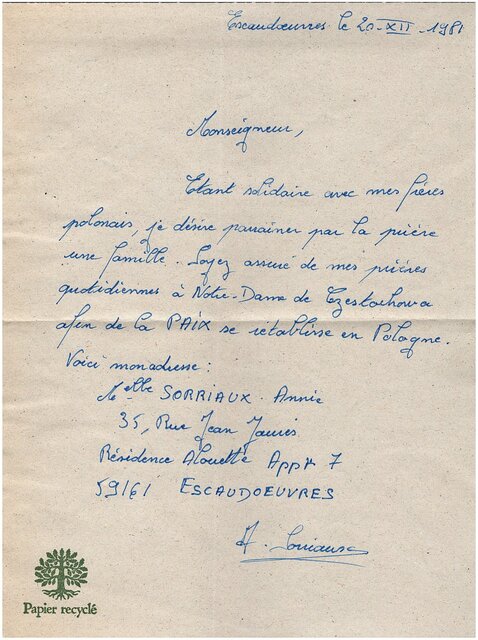 Escaudœuvres le 20-XII-1981
Monseigneur,
Etant solidaire avec mes frères
polonais, je désire parrainer par la prière
une famille. Soyez assuré de mes prières
quotidiennes à Notre-Dame de Czestochowa
afin de la PAIX se rétablisse en Pologne.
Voici mon adresse :
Melle SORRIAUX Annie
35, Rue Jean Jaurès
Résidence Alouette Appt 7
59161 ESCAUDOEUVRES
A. Sorriaux
Papier recyclé